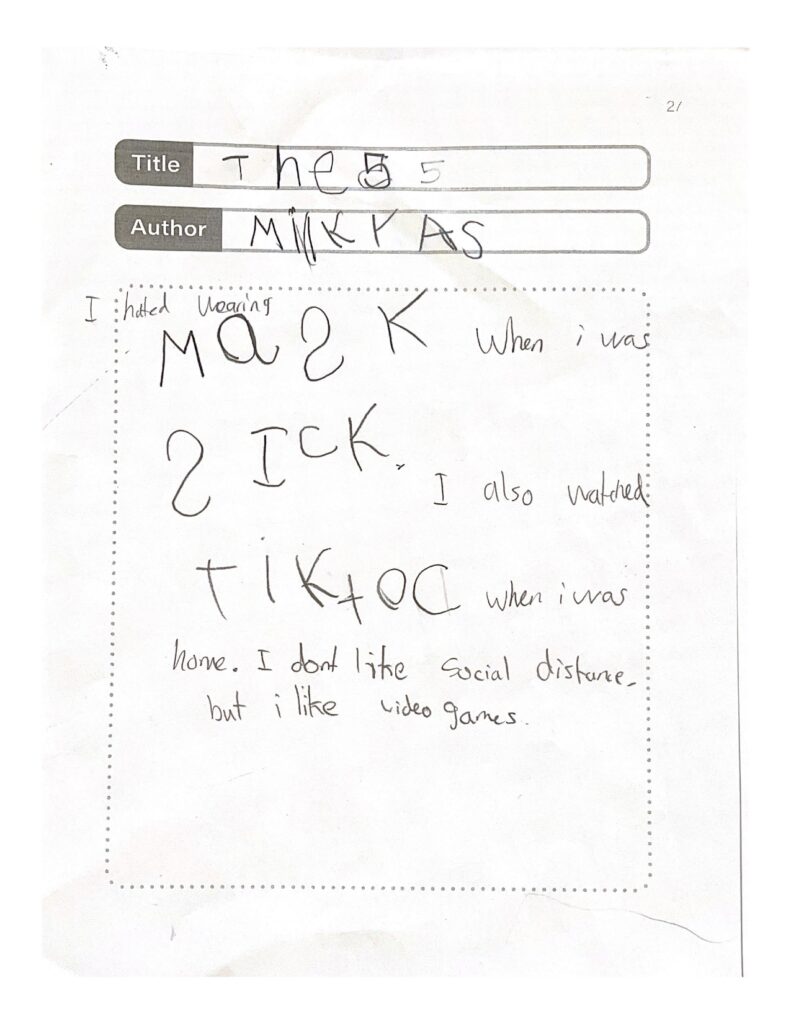 21
Title The 5 5
Author Milkyas
I hated wearing
MaSK when i was
SICK. I also watched
tiKtoc when i was
home. I dont like social distance.
but i like video games.